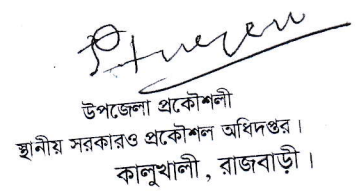 উপজেলা প্রকৌশলী
স্থানীয় সরকারও প্রকৌশল অধিদপ্তর।
কালুখালী, রাজবাড়ী।